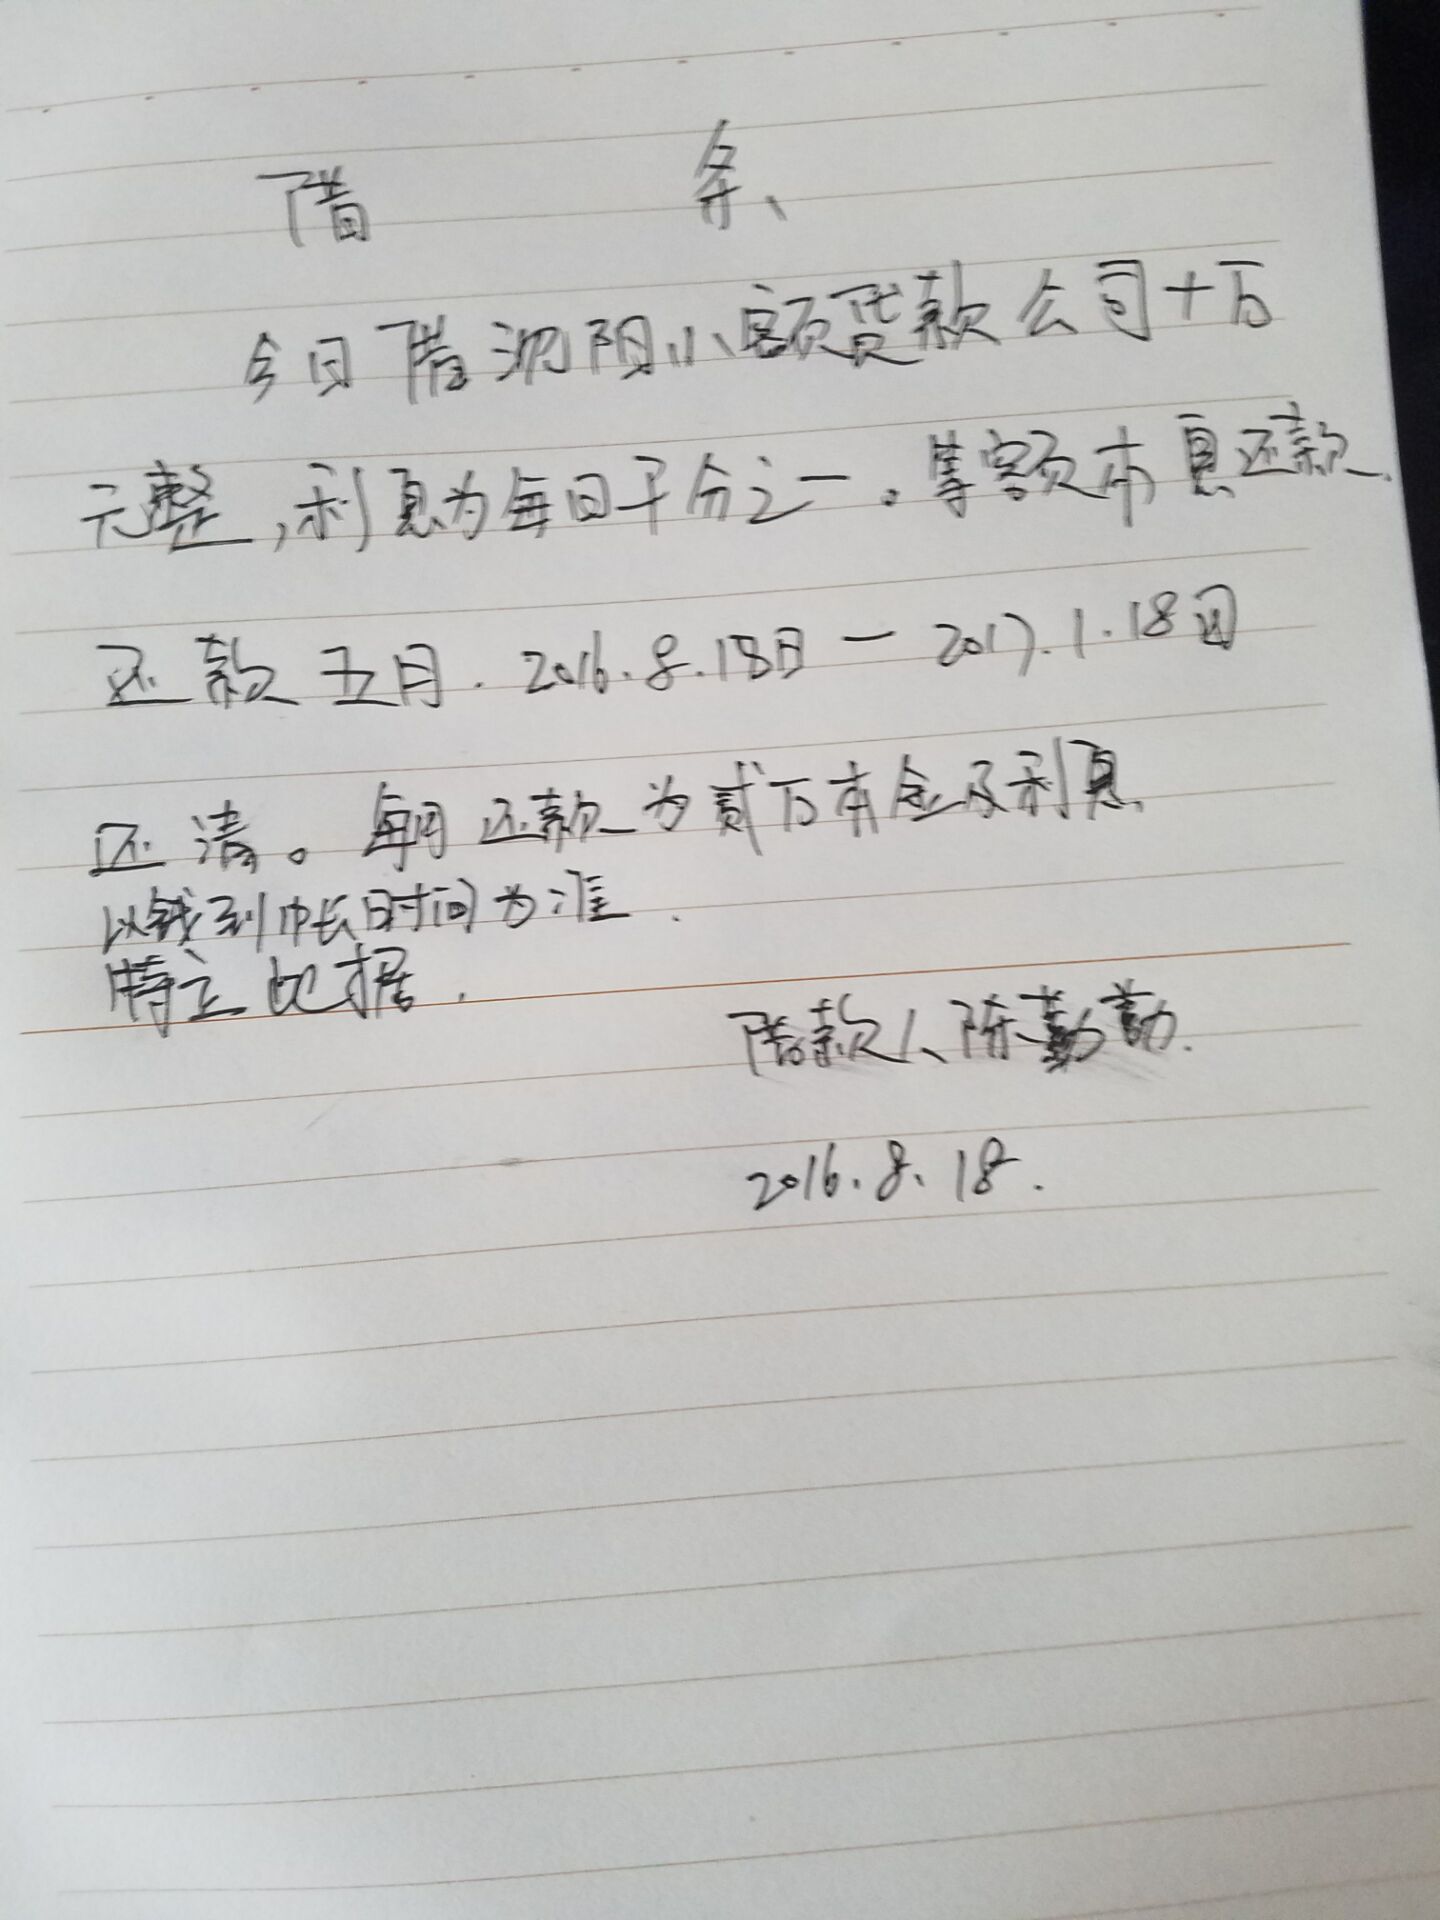 借 条、
今日借沈阳小额贷款公司十万
元整,利息为每日千分之一。等额本息还款.
还款五月.2016.8.18日—2017.1.18日
还清。每月还款为贰万本金及利息.
以钱到帐时间为准.
特立此据.
借款人、陈勤勤.
2016.8.18.